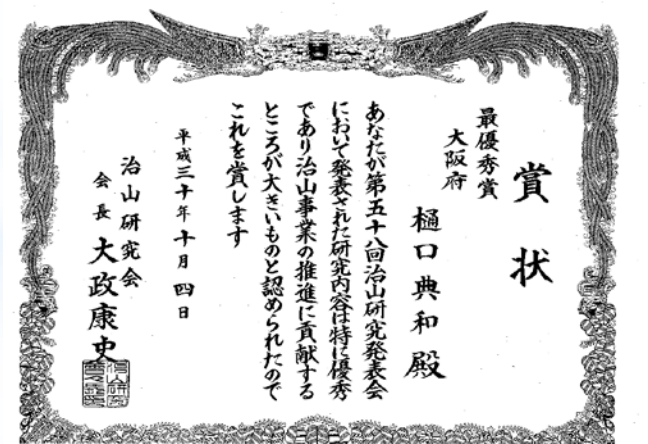 賞状
最優秀賞
大阪府
樋口典和殿
あなたが第五十八回治山研究発表会
において発表された研究内容は特に優秀
であり治山事業の推進に貢献する
ところが大きいものと認められたので
これを賞します
平成三十年十月四日
治山研究会
会長 大政康史